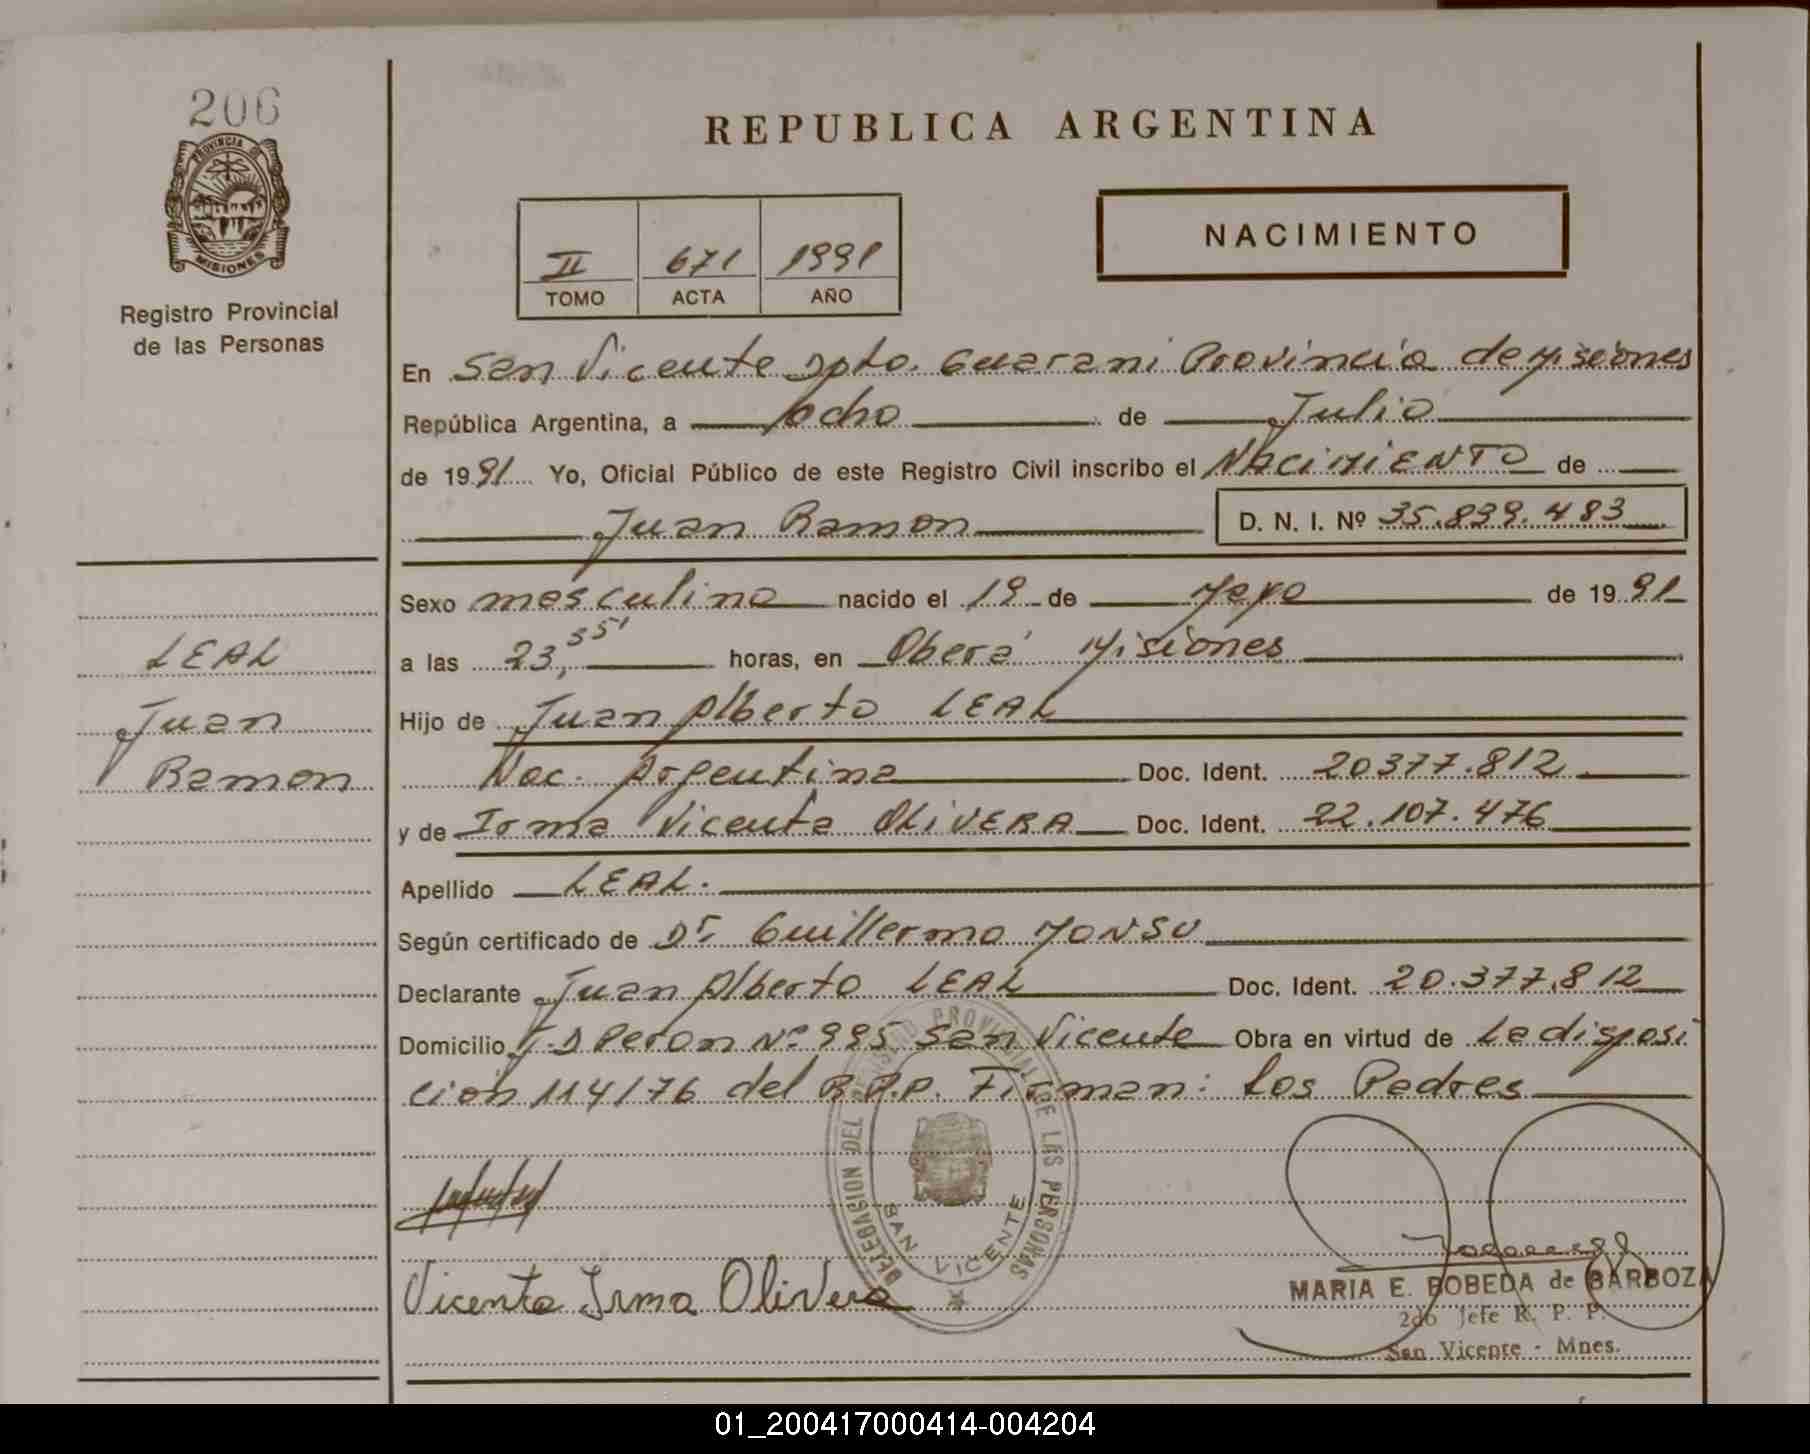 206
PROVINCIA DE
MISIONES
Registro Provincial
de las Personas
LEAL
Juan
Ramon
REPUBLICA ARGENTINA
NACIMIENTO
II 671 1991
TOMO ACTA AÑO
En San Vicente Dpto. Guarani Provincia de Misiones
República Argentina, a ocho de Julio
de 1991 Yo, Oficial Público de este Registro Civil inscribo el NaciMiENTO de
Juan Ramon D. N. I. Nº 35.839.483
Sexo masculino nacido el 19 de Mayo de 1991
a las 23,55' horas, en Oberá Misiones
Hijo de Juan Alberto LEAL
Nac. Argentina Doc. Ident. 20377.812
y de Irma Vicenta OLiVERA Doc. Ident. 22.107.476
Apellido LEAL.
Según certificado de Dr. Guillermo
Declarante Juan Alberto LEAL Doc. Ident. 20.377.812
Domicilio J.D Peron Nº 995 San Vicente Obra en virtud de La disposi
ción 114/76 del R.P.P. Firman: Los Padres
DELEGASION DEL REGISTRO PROVINCIAL DE LAS PERSONAS
SAN VICENTE
Vicenta Irma Olivera
MARIA E. BOBEDA de BARBOZA
2do Jefe R. P. P.
San Vicente - Mnes.
01_200417000414-004204